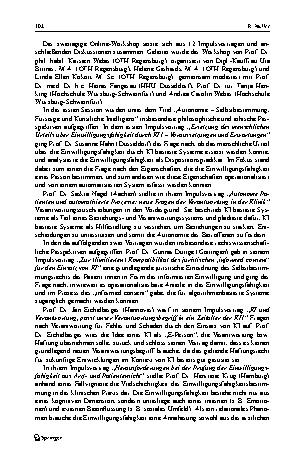 102 R. Müller
Das zweitägige Online-Workshop setzte sich aus 12 Impulsvorträgen und an-
schließenden Diskussionen zusammen. Geleitet wurde der Workshop von Prof. Dr.
phil. habil. Karsten Weber (OTH Regensburg), organisiert von Dipl.-Kauffrau Ute
M. A. (OTH Regensburg), Helena M. A. (OTH Regensburg) und
Linda Ellen M. Sc. (OTH Regensburg), gemeinsam moderiert mit Prof.
Dr. med. Dr. h. c. Heiner Fangerau (HHU Düsseldorf), Prof. Dr. Tanja Hen-
king (Hochschule Würzburg-Schweinfurt) und Andrea Carolin (Hochschule
Würzburg-Schweinfurt).
In der ersten Session wurden unter dem Titel „Autonomie – Selbstbestimmung,
Fürsorge und Künstliche Intelligenz“ insbesondere philosophische und ethische Per-
spektiven aufgegriffen. In dem ersten Impulsvortrag „Ersetzung der menschlichen
Urteile über Einwilligungsfähigkeit durch KI? – Voraussetzungen und Erwartungen“
ging Prof. Dr. Susanne Hahn (Düsseldorf) der Frage nach, ob das menschliche Urteil
über die Einwilligungsfähigkeit durch KI-basierte Systeme ersetzt werden könnte,
und analysierte die Einwilligungsfähigkeit als Dispositionsprädikat. Im Fokus stand
dabei zum einen die Frage nach den Eigenschaften, die die Einwilligungsfähigkeit
einer Person bestimmen, und zum anderen wie diese Eigenschaften operationalisiert
und von einem automatisierten System erfasst werden können.
Prof. Dr. Saskia Nagel (Aachen) stellte in ihrem Impulsvortrag „Autonome Pa-
tienten und automatisierte Prozesse: neue Fragen der Verantwortung in der Klinik“
Verantwortungszuschreibungen in den Vordergrund. Sie beschrieb KI-basierte Sys-
teme als Teil eines Beziehungs- und Verantwortungssystems und plädierte dafür, KI-
basierte Systeme als Hilfestellung zu verstehen, um Beziehungen zu stärken, Ent-
scheidungen zu unterstützen und somit die Autonomie der Betroffenen zu fördern.
In den darauffolgenden zwei Vorträgen wurden insbesondere rechtswissenschaft-
liche Perspektiven aufgegriffen. Prof. Dr. Gunnar Duttge (Göttingen) gab in seinem
Impulsvortrag „Zur (limitierten) Kompatibilität des juristischen „informed consent“
für den Einsatz von KI“ eine grundlegende juristische Einordnung des Selbstbestim-
mungsrechts der Patient:innen in Form der informierten Einwilligung und ging der
Frage nach, inwieweit es operationalisierbare Anteile in der Einwilligungsfähigkeit
und im Prozess des „informed consent“ gebe, die für algorithmenbasierte Systeme
zugänglich gemacht werden können.
Prof. Dr. Jan Eichelberger (Hannover) warf in seinem Impulsvortrag „KI und
Verantwortung, passt unser Verantwortungsbegriff in das Zeitalter der KI?“ Fragen
nach Verantwortung für Fehler und Schäden durch den Einsatz von KI auf. Prof.
Dr. Eichelberger wies die Idee einer KI als „E-Person“, die Verantwortung bzw.
Haftung übernehmen solle, zurück, und schloss seinen Vortrag damit, dass es keinen
grundlegend neuen Verantwortungsbegriff brauche, da das geltende Haftungsrecht
für zukünftige Entwicklungen im Kontext von KI bereits gut gerüstet sei.
In ihrem Impulsvortrag „Herausforderungen bei der Prüfung der Einwilligungs-
fähigkeit aus Arzt- und Patientensicht“ stellte Prof. Dr. Henriette Krug (Hamburg)
anhand eines Fallvignette die Vielschichtigkeit der Einwilligungsfähigkeitsbestim-
mung in der klinischen Praxis dar. Die Einwilligungsfähigkeit bestehe nicht nur aus
einer kognitiven Dimension, sondern unterliege auch einer internen (z. B. Emotio-
nen) und externen Beeinflussung (z. B. soziales Umfeld). Als ein idealistisches Phäno-
men brauche die Einwilligungsfähigkeit eine Annäherung sowohl aus der ärztlichen
Springer